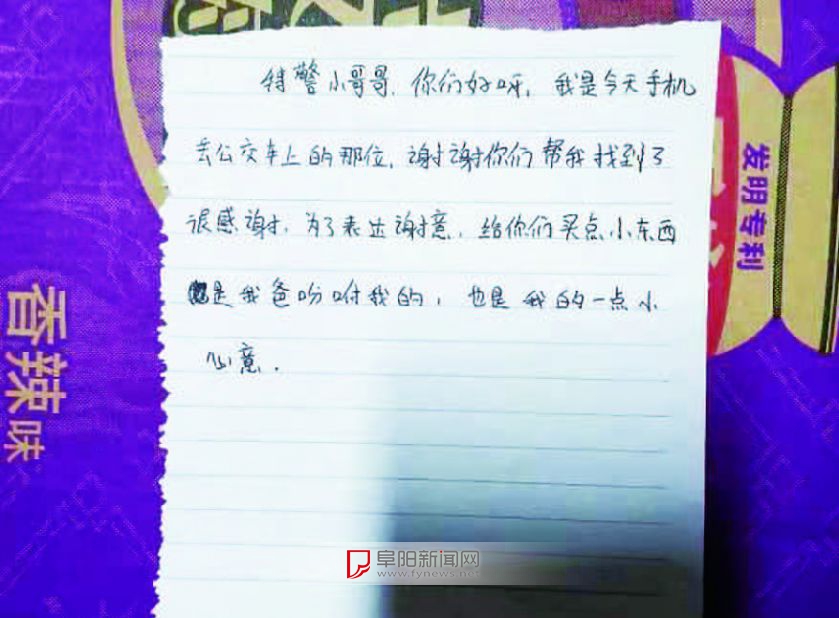 特警小哥哥，你们好呀，我是今天手机
丢公交车上的那位，谢谢你们帮我找到了
很感谢，为了表达谢意，给你们买点小东西
是我爸吩咐我的，也是我的一点小
心意.
香辣味
发明专利
阜阳新闻网
www.fynews.net